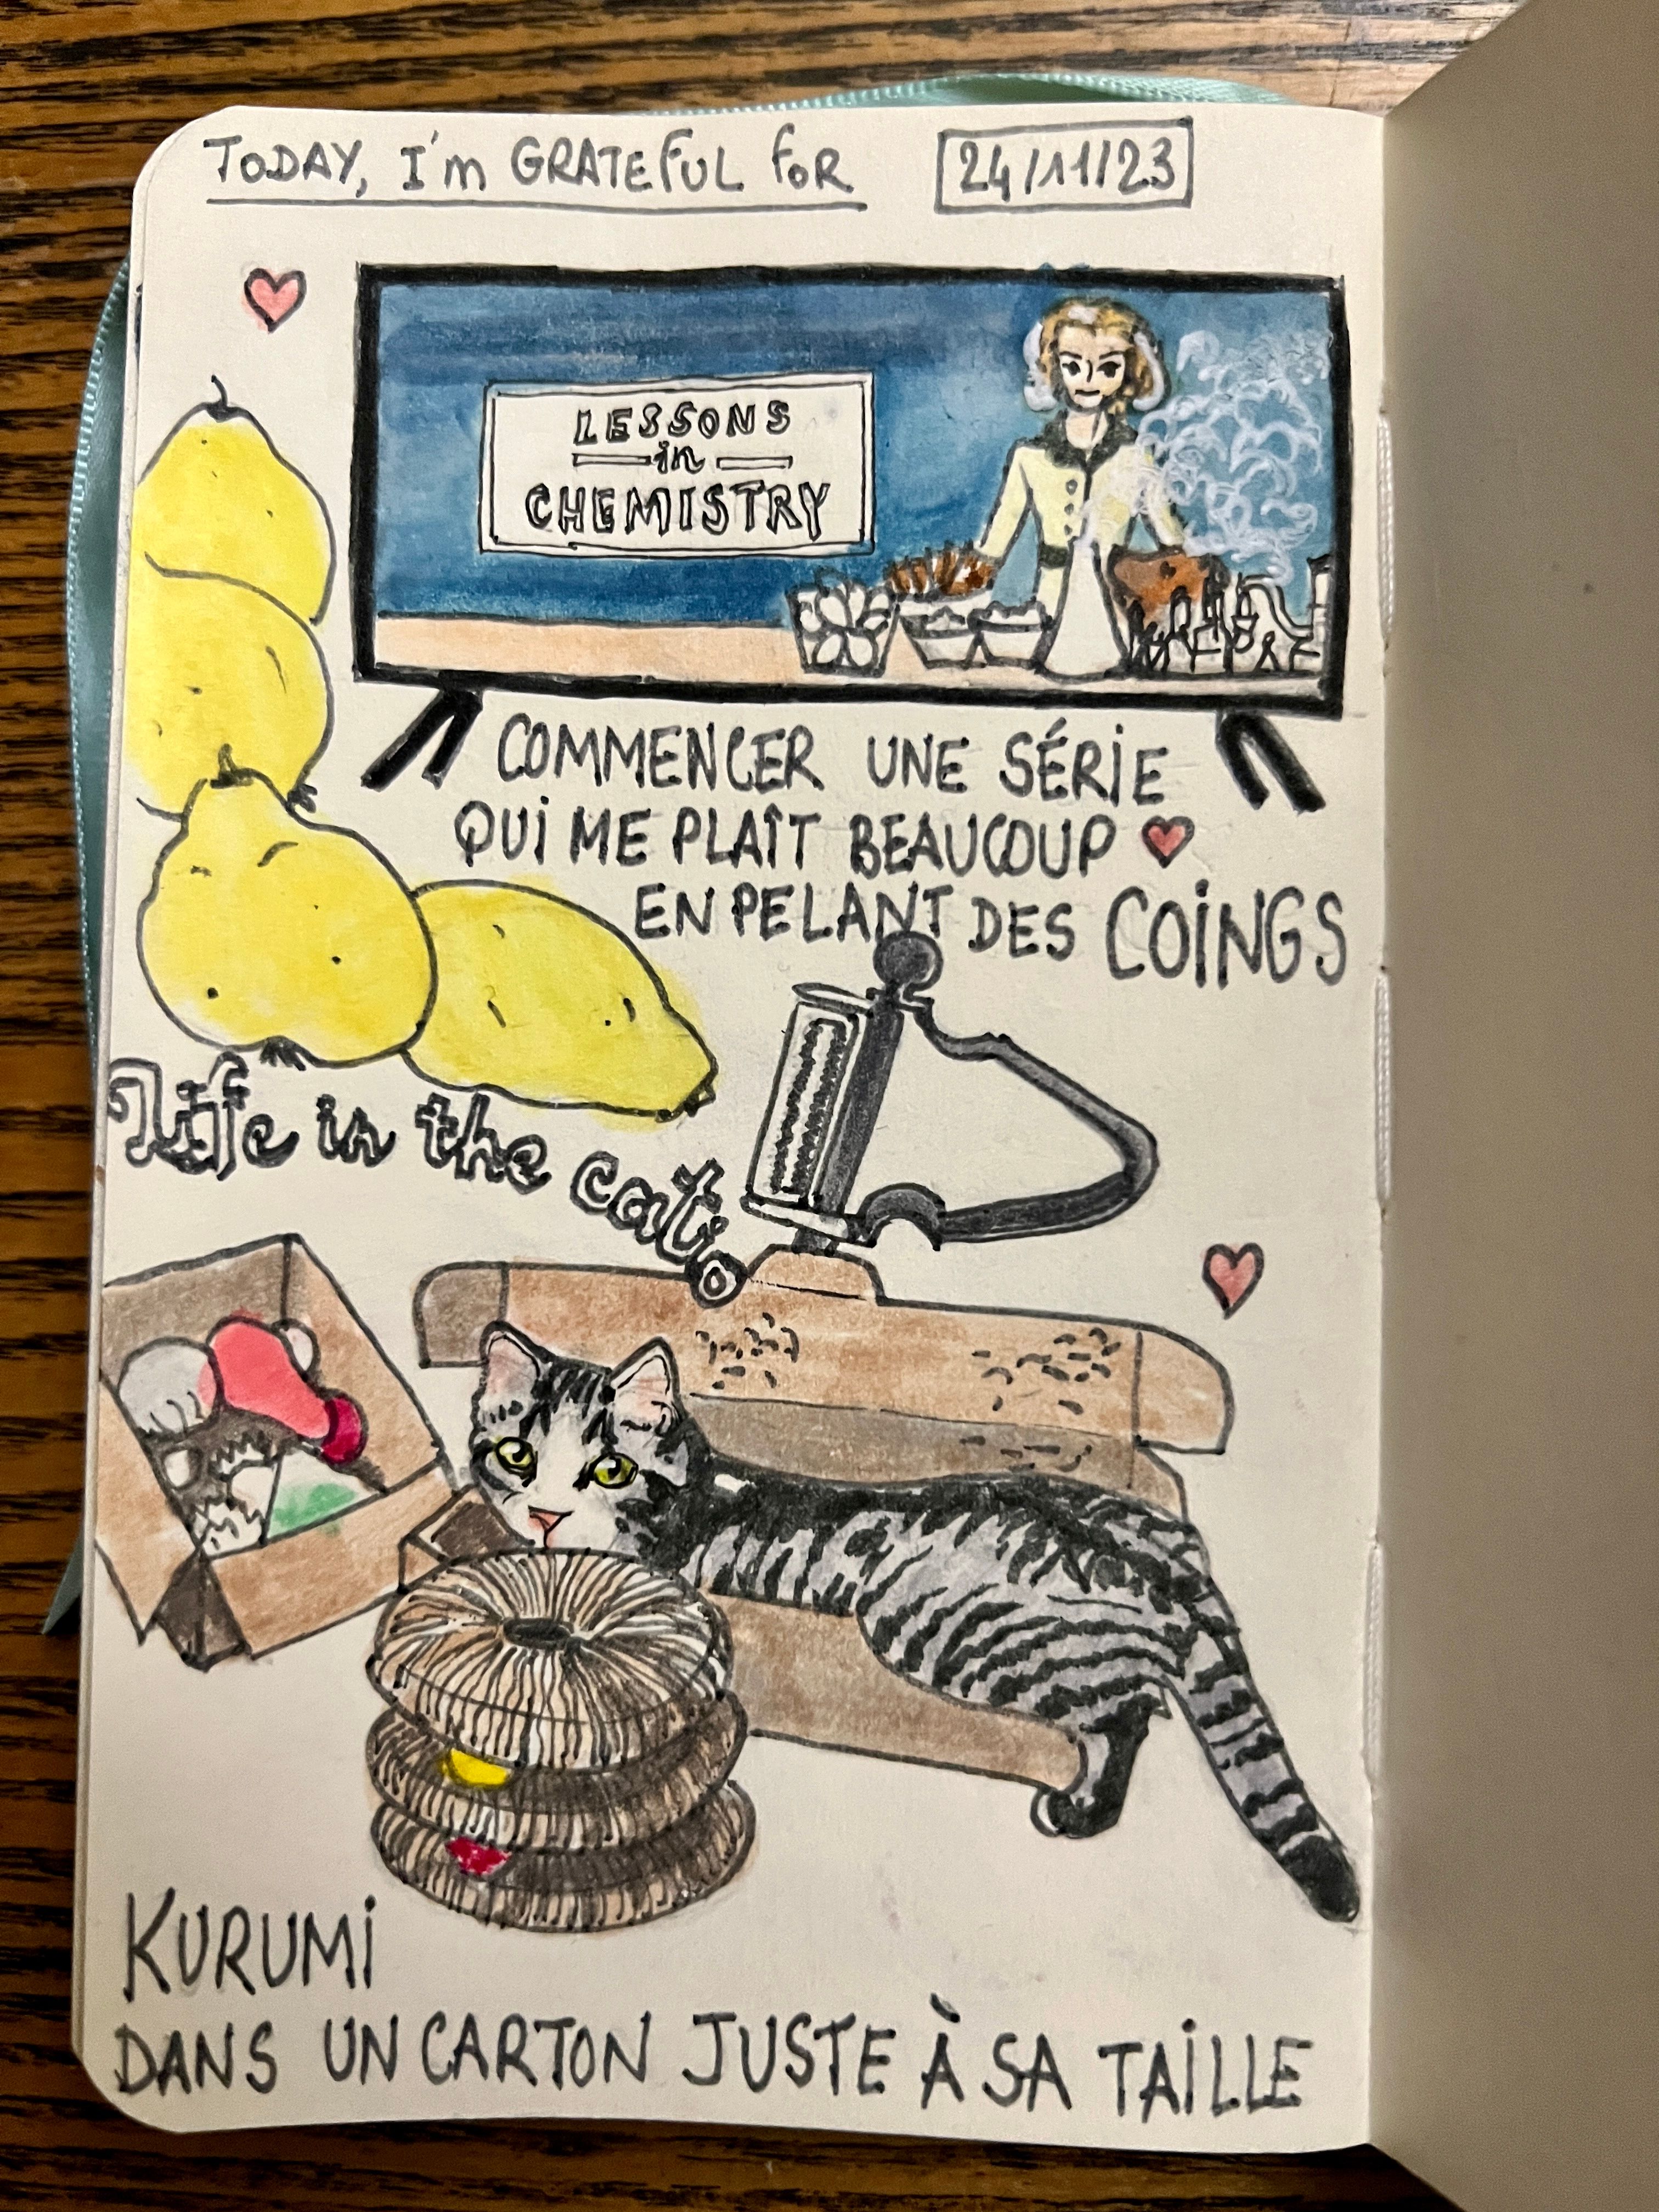 TODAY, I'm GRATEFUL FOR 24/11/23
LESSONS
in
CHEMISTRY
COMMENCER UNE SÉRIE
QUI ME PLAÎT BEAUCOUP
EN PELANT DES COINGS
Life in the cat.
KURUMI
DANS UN CARTON JUSTE À SA TAILLE